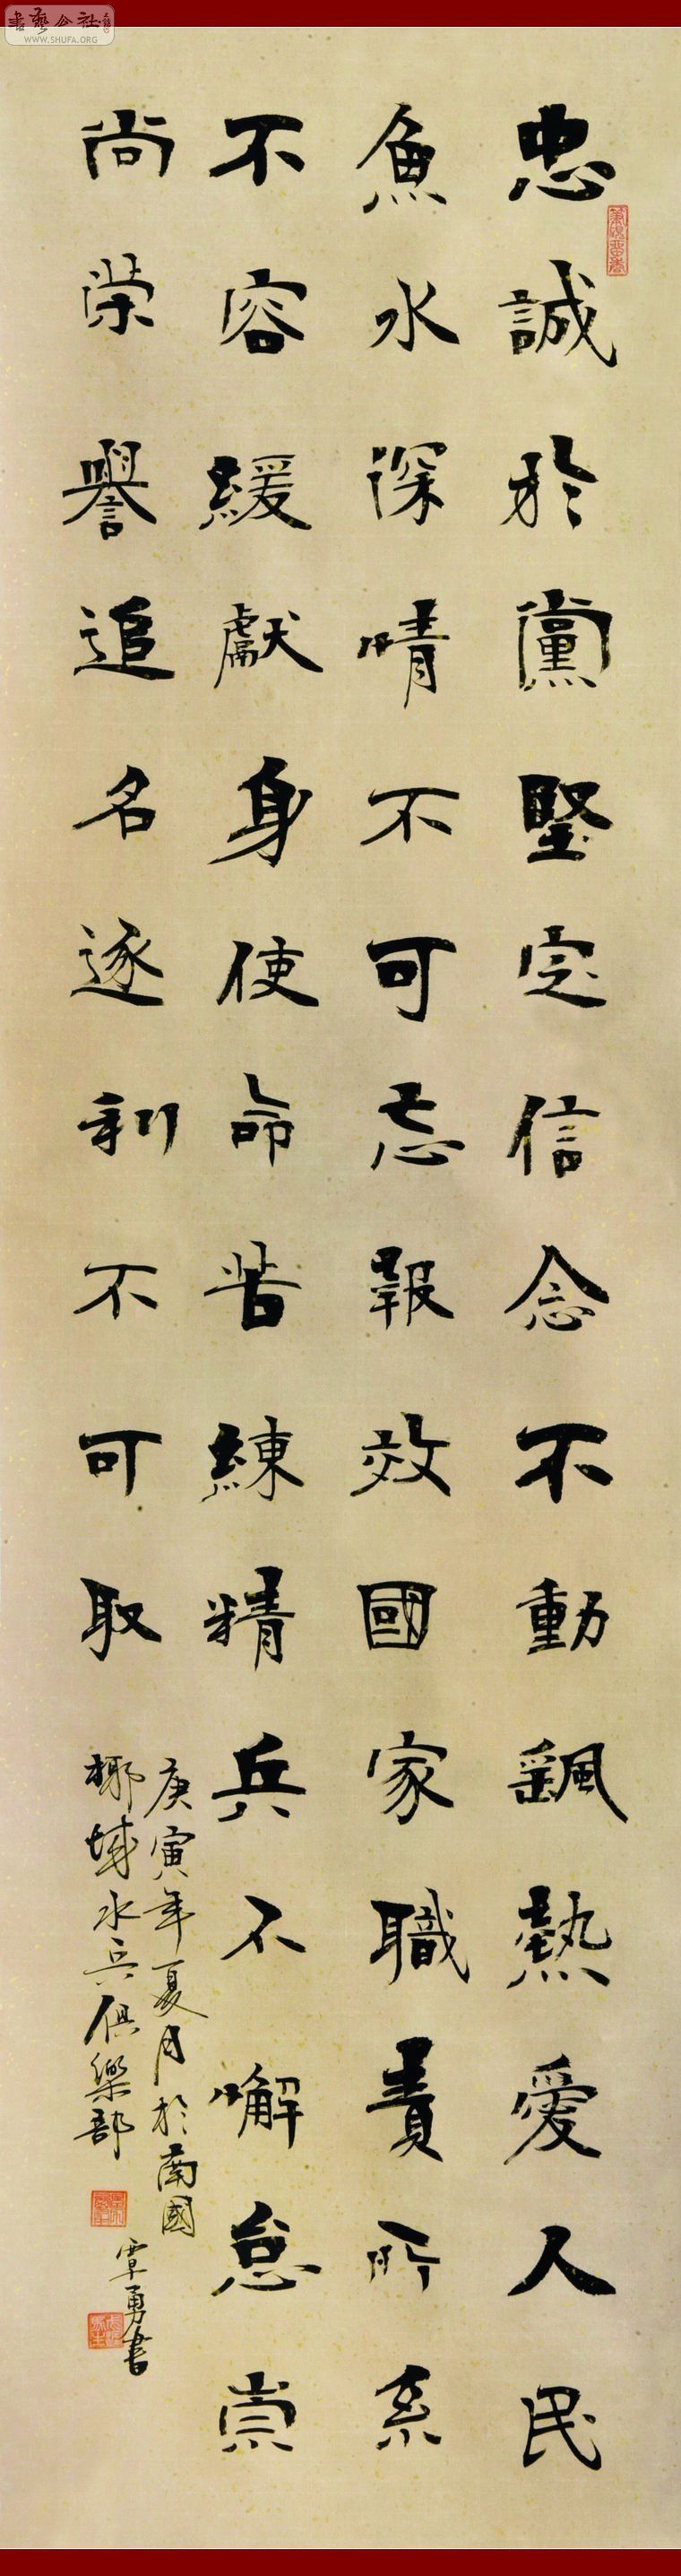 書藝公社
WWW.SHUFA.ORG
忠誠於黨堅定信念不動飄熱愛人民
魚水深情不可忘報效國家職責所系
不容緩獻身使命苦練精兵不懈怠崇
尚榮譽追名逐利不可取
庚寅年夏月於南國
椰城水兵俱樂部
覃勇書